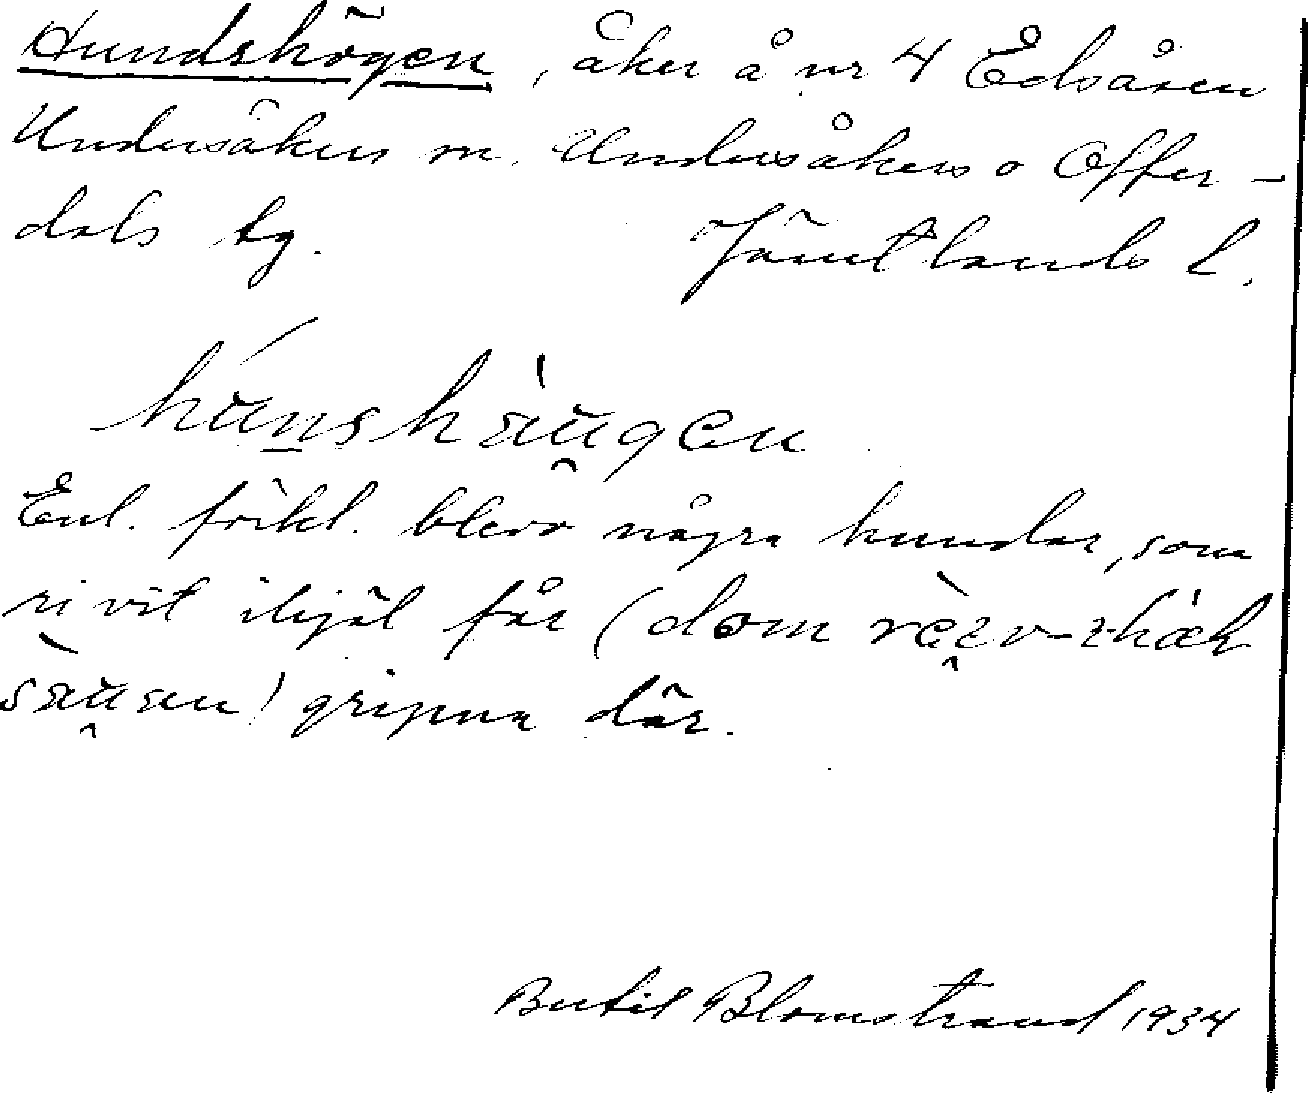 Hundshögen, åker å nr 4 Edsåsen
Undersåkers sn. Undersåkers o Offer-
dals tg. Jämtlands l.
Enl. förkl. blevo några hundar, som
rivit ihjäl får (dom
gripna där.
Bertil Blomstrand 1934